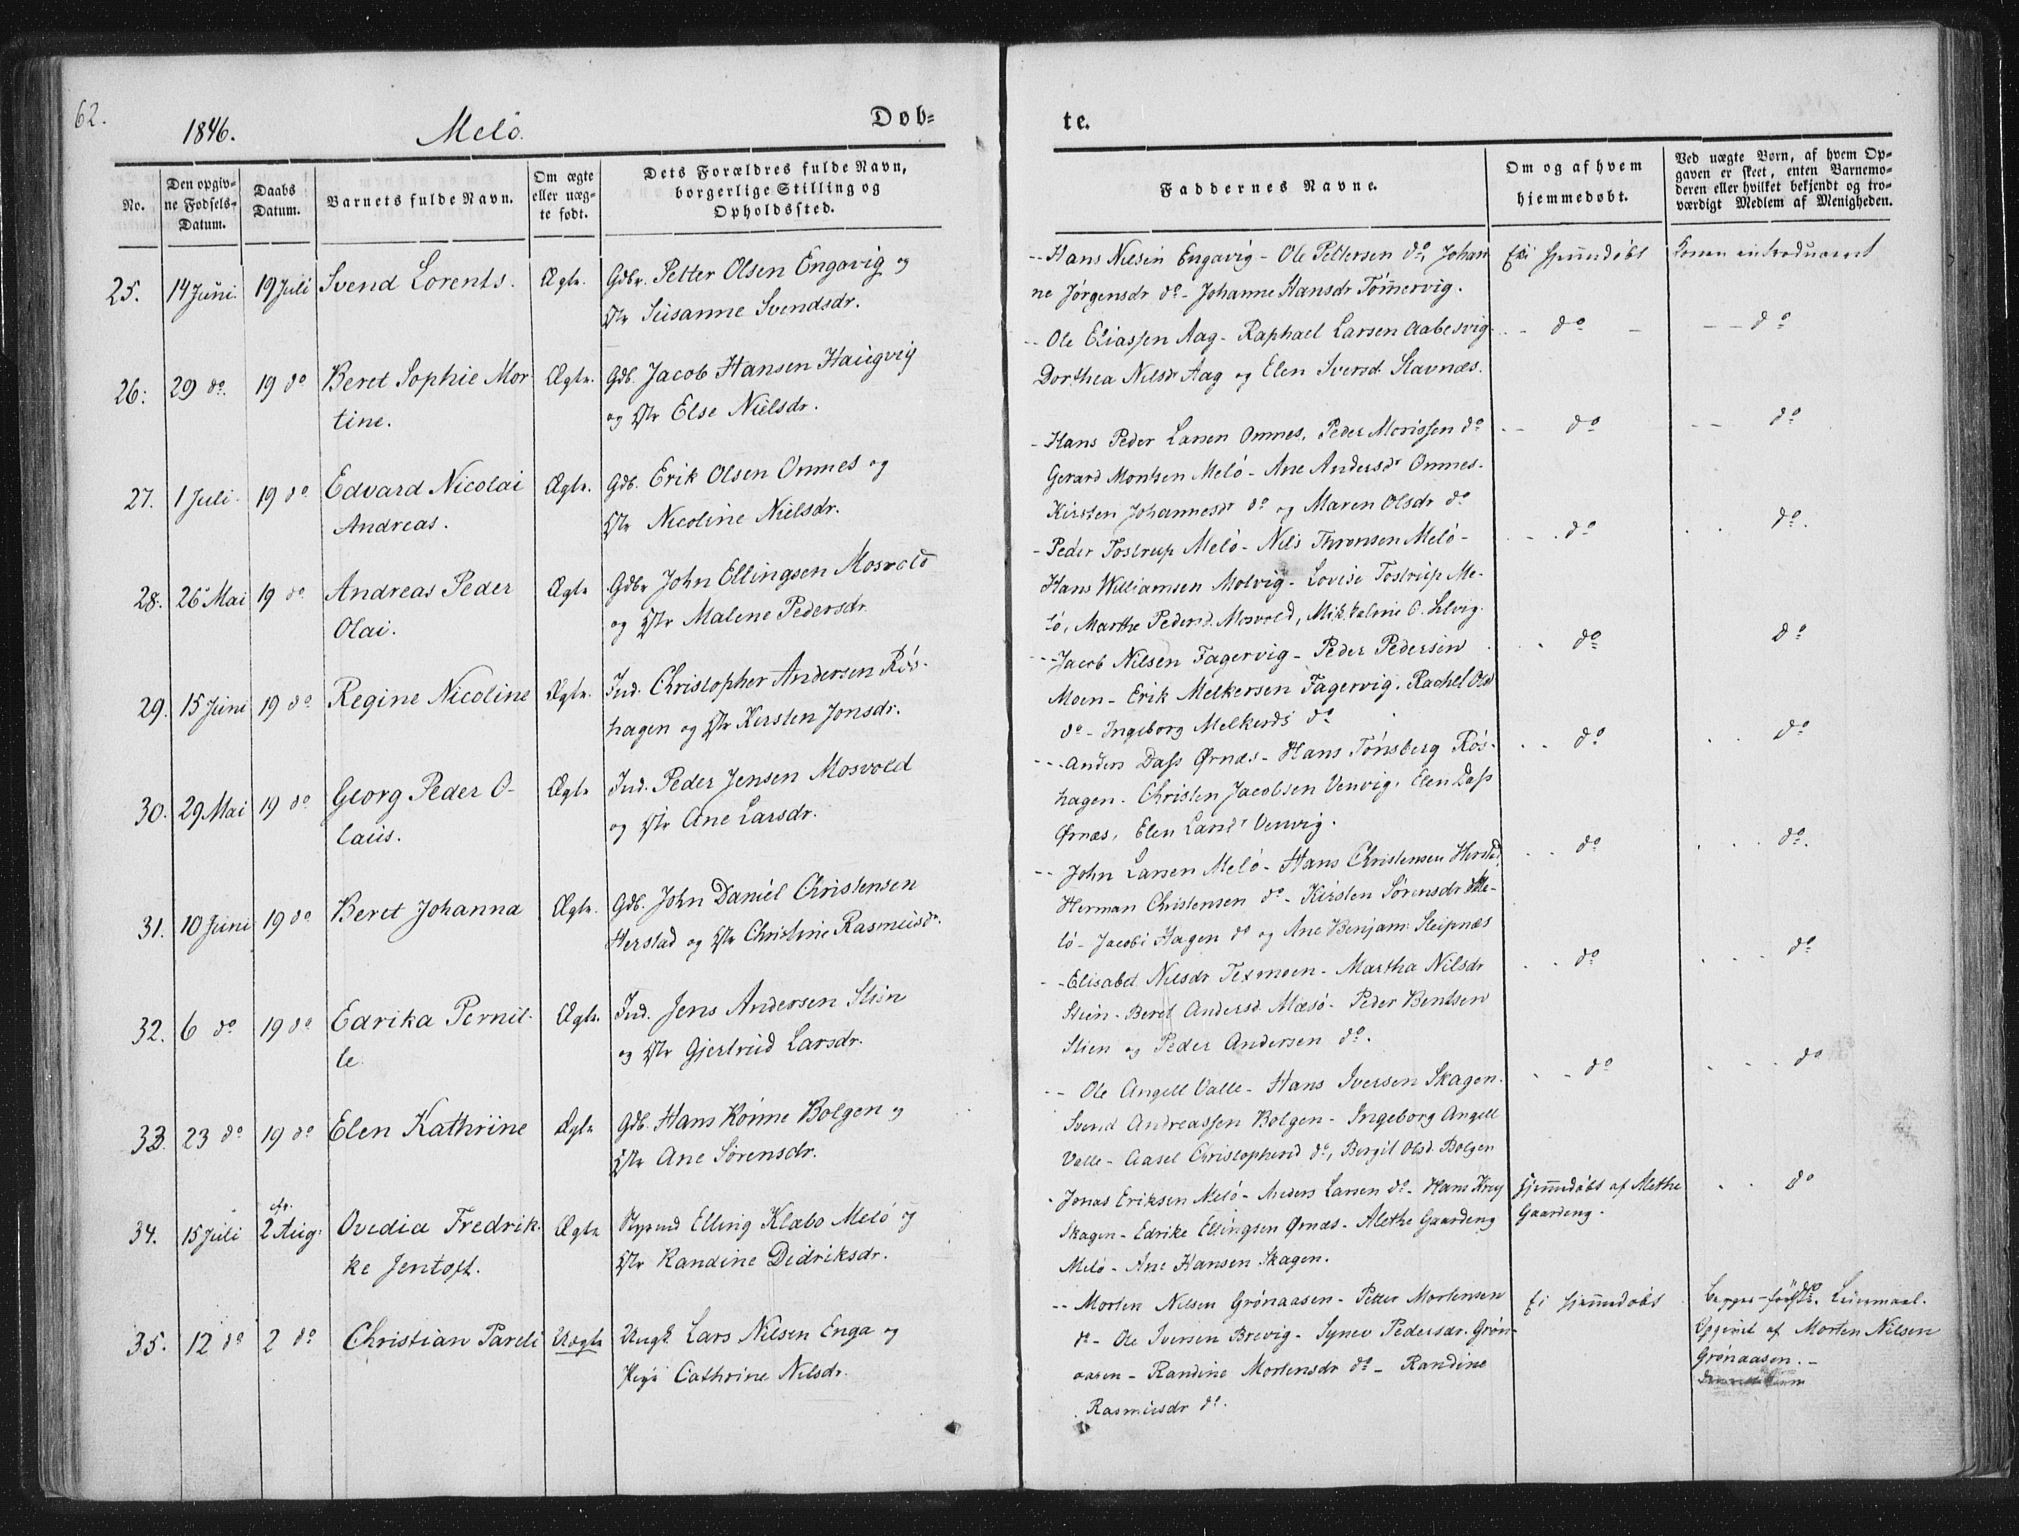 62.
1846. Melö. Døb-
te.
No.
Den opgiv-
ne Fødsels-
Datum.
Daabs
Datum.
Barnets fulde Navn.
Om ægte
eller uæg-
te født.
Dets Forældres fulde Navn,
borgerlige Stilling og
Opholdssted.
Faddernes Navne.
Om og af hvem
hjemmedøbt.
Ved uægte Børn, af hvem Op-
gaven er skeet, enten Barnemo-
deren eller hvilket bekjendt og tro-
værdigt Medlem af Menigheden.
25. 14 Juni. 19 Juli Svend Lorents. Ægte. Gdbr. Petter Olsen Engavig og
Susanne Svendsdr.
Hans Nilsen Engavig - Ole Pettersen do, Johan
ne Jörgensdr do - Johanne Hansdr Tömmervig.
Ei hjemmedöbt
Konen introduceret
26. 29 do. 19 do Beret Sophie Mor
tine.
Ægte. Gdb. Jacob Hansen Haugvig
og Else Nielsdr.
Ole Eliassen Aag - Raphael Larsen Aabesvig
Dorthea Nilsdr Aag og Elen Iversd. Stavnæs.
do
do
27. 1 Juli. 19 do. Edvard Nicolai
Andreas.
Ægte. Gdb. Erik Olsen Onnes og
Nicoline Nielsdr.
Hans Peder Larsen Onnes, Peder Morissen do
Gerard Montzen Melö - Ane Andersdr Onnes -
Kirsten Johannesdr do og Maren Olsdr do
do
do
28. 26 Mai 19 do Andreas Peder
Olai.
Ægte Gdbr John Ellingsen Mosvold
og Malene Pedersdr.
Peder Tostrup Melö - Nils Thronsen Melö -
Hans Williamsen Molvig - Lovise Tostrup Me-
lö, Marthe Pedersd. Mosvold, O. Selvig.
do
do.
29. 15 Juni 19 do Regine Nicoline Ægte. Ind. Christopher Andersen Rös-
hagen og Kirsten Jonsdr.
Jacob Nilsen Fagervig - Peder Pedersen
Moen - Erik Melkersen Fagervig. Rachel Olsd
do - Ingeborg Melkersd do
do
do
30. 29 Mai 19 do Georg Peder O-
laus.
Ægte Ind. Peder Jensen Mosvold
og Ane Larsdr.
Anders Dass Ørnæs - Hans Tönsberg Rös-
hagen. Christen Jacobsen Venvig. Elen Dass
Ørnæs, Elen Larsdr Venvig.
do
do
31. 10 Juni 19 do Beret Johanna Ægte. Gdb. John Daniel Christensen
Herstad og Christine Rasmusdr.
John Larsen Melö - Hans Christensen Herstad
Herman Christensen do - Kirsten Sörensdr Me-
lö - Jacobi Hagen do og Ane Benjam. Sleipnæs
do
do.
32. 6 do 19 do Edrika Pernil-
le.
Ægte. Ind. Jens Andersen Stien
og Gjertrud Larsdr.
Elisabet Nilsdr Texmoen - Martha Nilsdr
Stien - Beret Andersd. Mæsö - Peder Bentsen
Stien og Peder Andersen do.
do
do
33. 23 do 19 do Elen Kathrine Ægte Gdb. Hans Könne Bolgen og
Ane Sörensdr.
Ole Angell Valle - Hans Iversen Skagen.
Svend Andreassen Bolgen - Ingeborg Angell
Valle - Aasel Christophersd do, Bergit Olsd. Bolgen
do
do
34. 15 Juli 2 Aug. Ovedia Fredrik-
ke Jentoft.
Ægte Elling Klæbo Melö og
Randine Didriksdr.
Jonas Eriksen Melö - Anders Larsen do - Hans Krog
Skagen - Edrike Ellingsen Ørnæs - Alethe Gaardeng
Melö - Ane Hansen Skagen.
Hjemmedöbt af Alethe
Gaardeng.
do
35. 12 do 2 do Christian Pareli Uægte Ungk. Lars Nilsen Enga og
Pige Cathrine Nilsdr.
Morten Nilsen Grönaasen - Petter Mortensen
do - Ole Iversen Brevig - Synev Pedersdr. Grön-
aasen - Randine Mortensdr do - Randine
Rasmusdr do.
Ei hjemmedöbt
Begges förste Leiermaal.
Opgivet af Morten Nilsen
Grönaasen. -